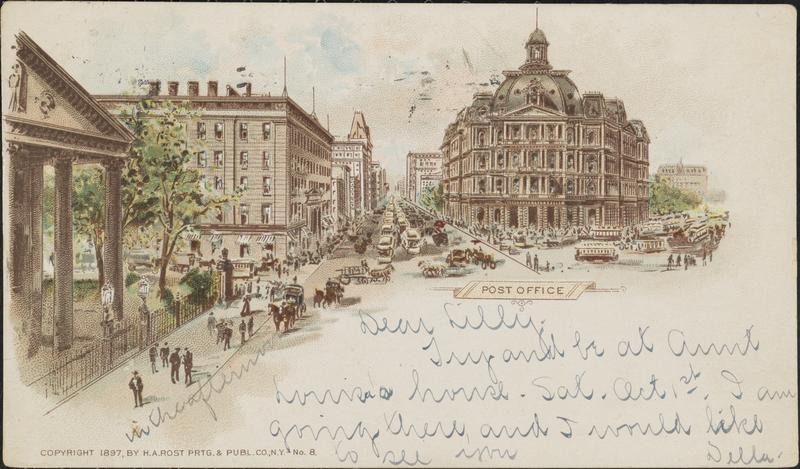 POST OFFICE
Dear Lilly,
Try and be at Aunt
Louisa's house. Sat. Oct. 1st. I am
going there, and I would like
to see you Della.
in the afternoon
COPYRIGHT 1897, BY H.A.ROST PRTG. & PUBL.CO., N.Y. No. 8.